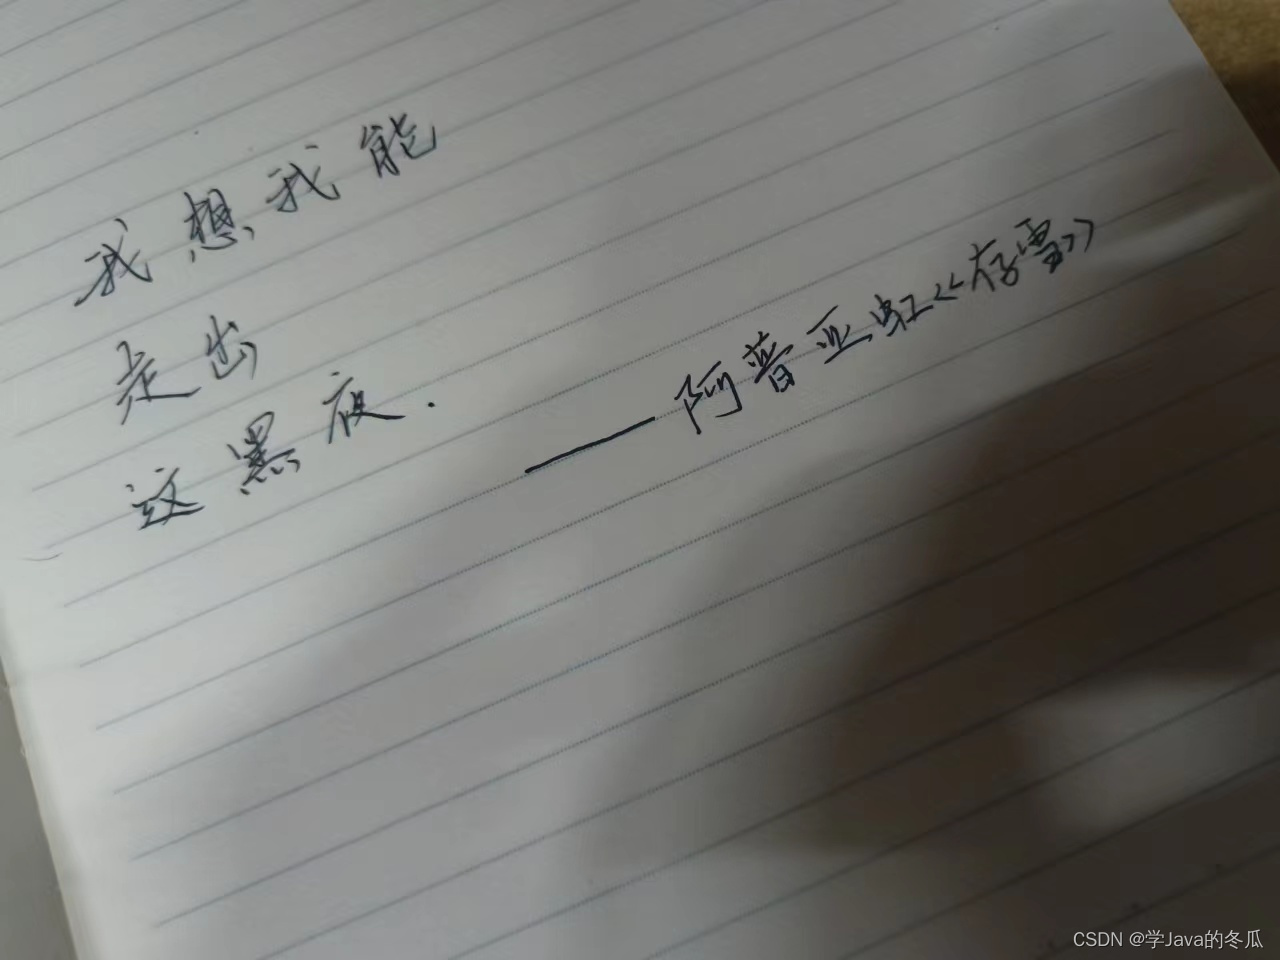 我想我能
走出
这黑夜.
——阿普亚虹《存雪》
CSDN @学Java的冬瓜